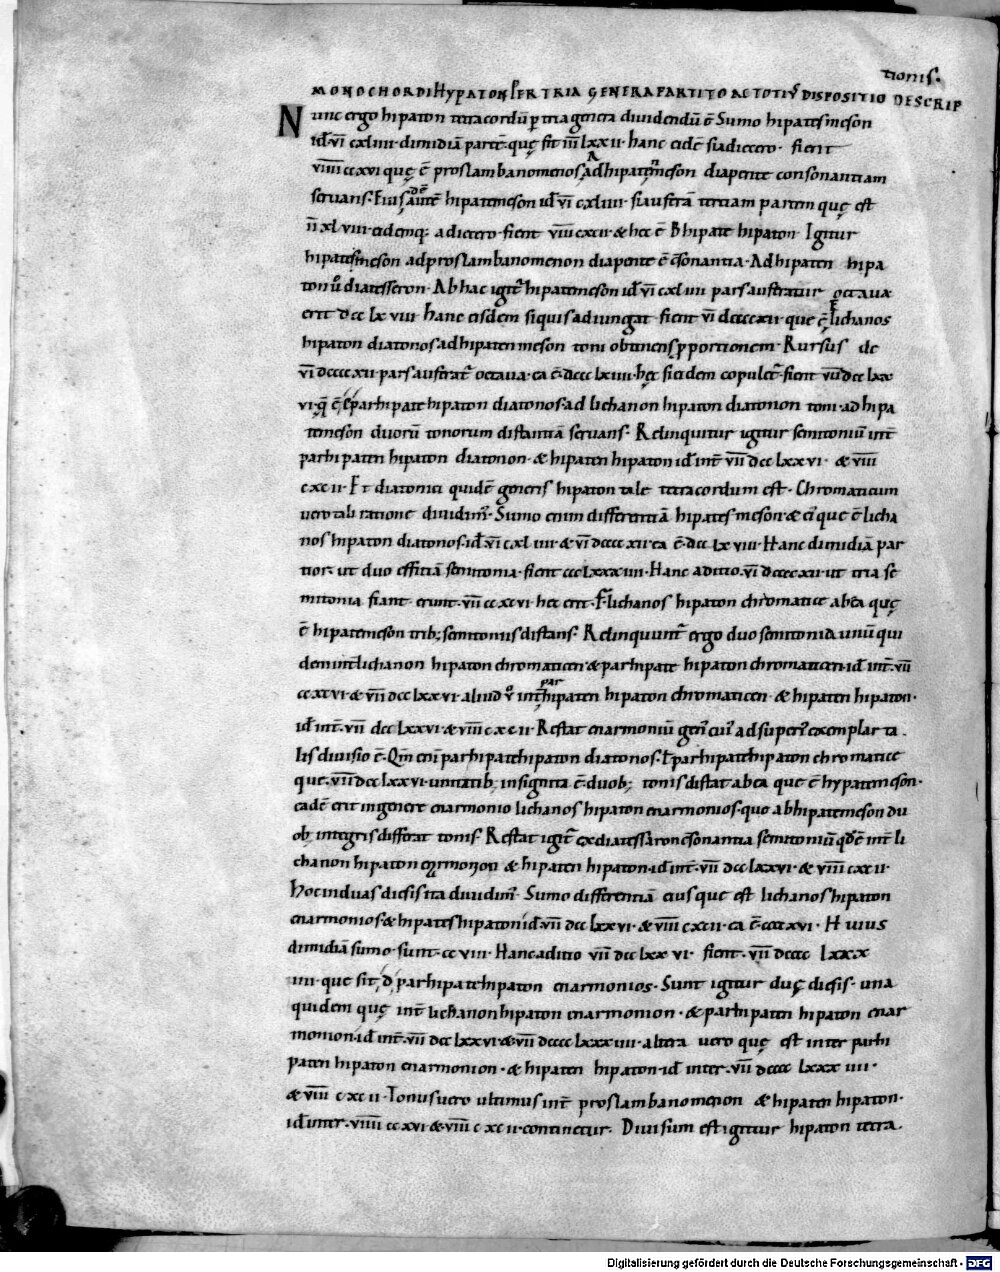 tionis.
MONOCHORDI HYPATON PER TRIA GENERA PARTITIO AC TOTIUS DISPOSITIO DESCRIP
Nunc ergo hipaton tetracordū p tria genera diuidendū ē Sumo hipates meson
id ÷ VĪ CXLIIII · dimidiā partē · quę sit ĪĪĪ LXXII · hanc eidē si adiecero · fient
V̄ĪĪĪĪ CCXVI quę ē proslambanomenos, ad hipatē meson diapente consonantiam
seruans · Eius autē hipate meson id VĪ CXLIIII · si auferā tertiam partem quę est
ĪĪ XLVIII · eidemq; adiecero · fient V̄ĪĪĪ CXCII · & hec ē B hipate hipaton · Igitur
hipates meson ad proslambanomenon diapente ē ɔsonantia · Ad hipaten hipa
ton ů diatesseron · Ab hac igit̄ hipate meson id VĪ CXLIIII pars auferatur octaua
erit DCC LXVIII hanc eisdem si quis adiungat fient VĪ DCCCCXII · que ē E lichanos
hipaton diatonos · ad hipaten meson toni obtinens pportionem · Rursus de
VĪ DCCCCXII · pars auferat̄ octaua · ea ē · DCCC LXIIII · hęc si eidem copulet̄ · fient VĪĪ DCC LXX
VI · q̄ ē parhipate hipaton diatonos · ad lichanon hipaton diatonon toni · ad hipa
te meson duorū tonorum distantiā seruans · Relinquitur igitur semitoniū int̄
parhipaten hipaton diatonon · & hipaten hipaton id int̄ VĪĪ DCC LXXVI · & V̄ĪĪĪ
CXCII · Et diatonici quidē generis hipaton tale tetracordum est · Chromaticum
uero tali ratione diuidim̄ · Sumo enim differentiā hipates meson · & ei que ē licha
nos hipaton diatonos · id VĪ CXLIIII & VĪ DCCCCXII · ea ē · DCC LXVIII · Hanc dimidiā par
tior · ut duo efficiā semitonia · fient CCC LXXXIIII · Hanc aditio · VĪ DCCCCXII · ut tria se
mitonia fiant · erunt · VĪĪ CCXCVI · hec erit · F lichanos hipaton chromatice ab ea quę
ē hipate meson trib; semitoniis distans · Relinquunt̄ ergo duo semitonia unū qui
dem int̄ lichanon hipaton chromaticen · & parhipate hipaton chromaticen · id int̄ · VĪĪ
CCXCVI · & VĪĪ DCC LXXVI · aliud ů int̄ parhipaten hipaton chromaticen · & hipaten hipaton ·
id int̄ · VĪĪ DCC LXXVI · & V̄ĪĪĪ CXCII · Restat enarmoniū gen' cui' ad superi' exemplar ta
lis diuisio ē · Qm̄ eni parhipate hipaton diatonos · ł parhipate hipaton chromatice
que · VĪĪ DCC LXXVI · unitatib; insignita ē · duob; tonis distat ab ea que ē hypate meson ·
eadē erit in genere enarmonio lichanos hipaton enarmonios · que ab hipate meson du
ob; integris differat tonis · Restat igit̄ ex diatessaron ɔsonantia semitoniū qd̄ ē int̄ li
chanon hipaton enarmonion & hipaten hipaton · id int̄ · VĪĪ DCC LXXVI · & V̄ĪĪĪ CXCII ·
Hoc in duas diesis ita diuidim̄ · Sumo differentiā eius que est lichanos hipaton
enarmonios · & hipates hipaton id · VĪĪ DCC LXXVI · & V̄ĪĪĪ CXCII · ea ē · CCCCXVI · Huius
dimidiā sumo · sunt · CCVIII · Hanc aditio VĪĪ DCC LXXVI · fient · VĪĪ DCCCC LXXX
IIII · que sit parhipate hipaton enarmonios · Sunt igitur duę diesis · una
quidem quę int̄ lichanon hipaton enarmonion · & parhipaten hipaton enar
monion · id int̄ · VĪĪ DCC LXXVI · & VĪĪ DCCCC LXXXIIII · altera uero quę est inter parhi
paten hipaton enarmonion · & hipaten hipaton · id inter · VĪĪ DCCCC LXXXIIII ·
& V̄ĪĪĪ CXCII · Tonus uero ultimus int̄ proslambanomenon & hipaten hipaton ·
id inter · V̄ĪĪĪĪ CCXVI & V̄ĪĪĪ CXCII · continetur · Diuisum est igitur hipaton tetra
Digitalisierung gefördert durch die Deutsche Forschungsgemeinschaft - DFG